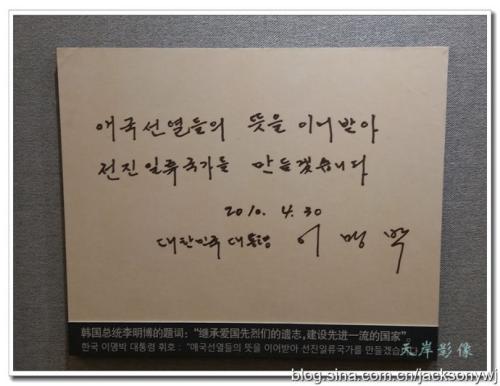 애국선열들의 뜻을 이어받아
선진일류국가를 만들겠습니다
2010. 4. 30
대한민국 대통령 이명박
韩国总统李明博的题词：“继承爱国先烈们的遗志，建设先进一流的国家”。
한국 이명박 대통령 휘호 : “애국선열들의 뜻을 이어받아 선진일류국가를 만들겠습니다
天岸影像
blog.sina.com.cn/jacksonywj